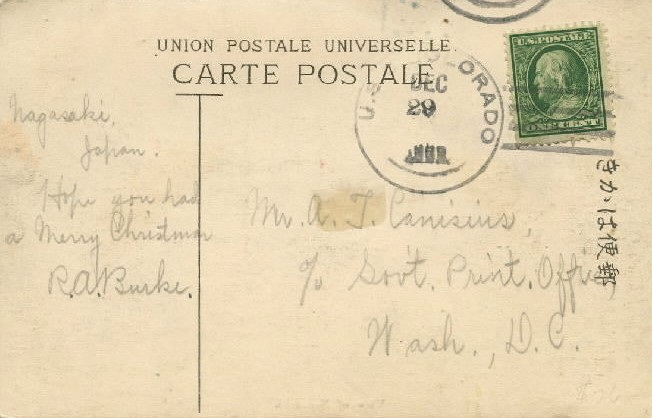 UNION POSTALE UNIVERSELLE.
CARTE POSTALE
U.S.S. COLORADO
DEC
29
U.S. POSTAGE
ONE CENT
きかは便郵
Nagasaki,
Japan.
Hope you had
a Merry Christmas
R.A. Burke.
Mr. A. T. Canisius,
c/o Govt. Print. Office
Wash., D.C.